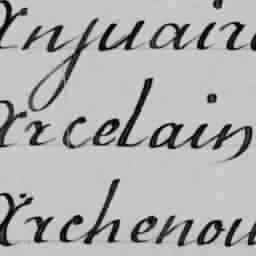 Anjuaire
Arcelain
Archenou